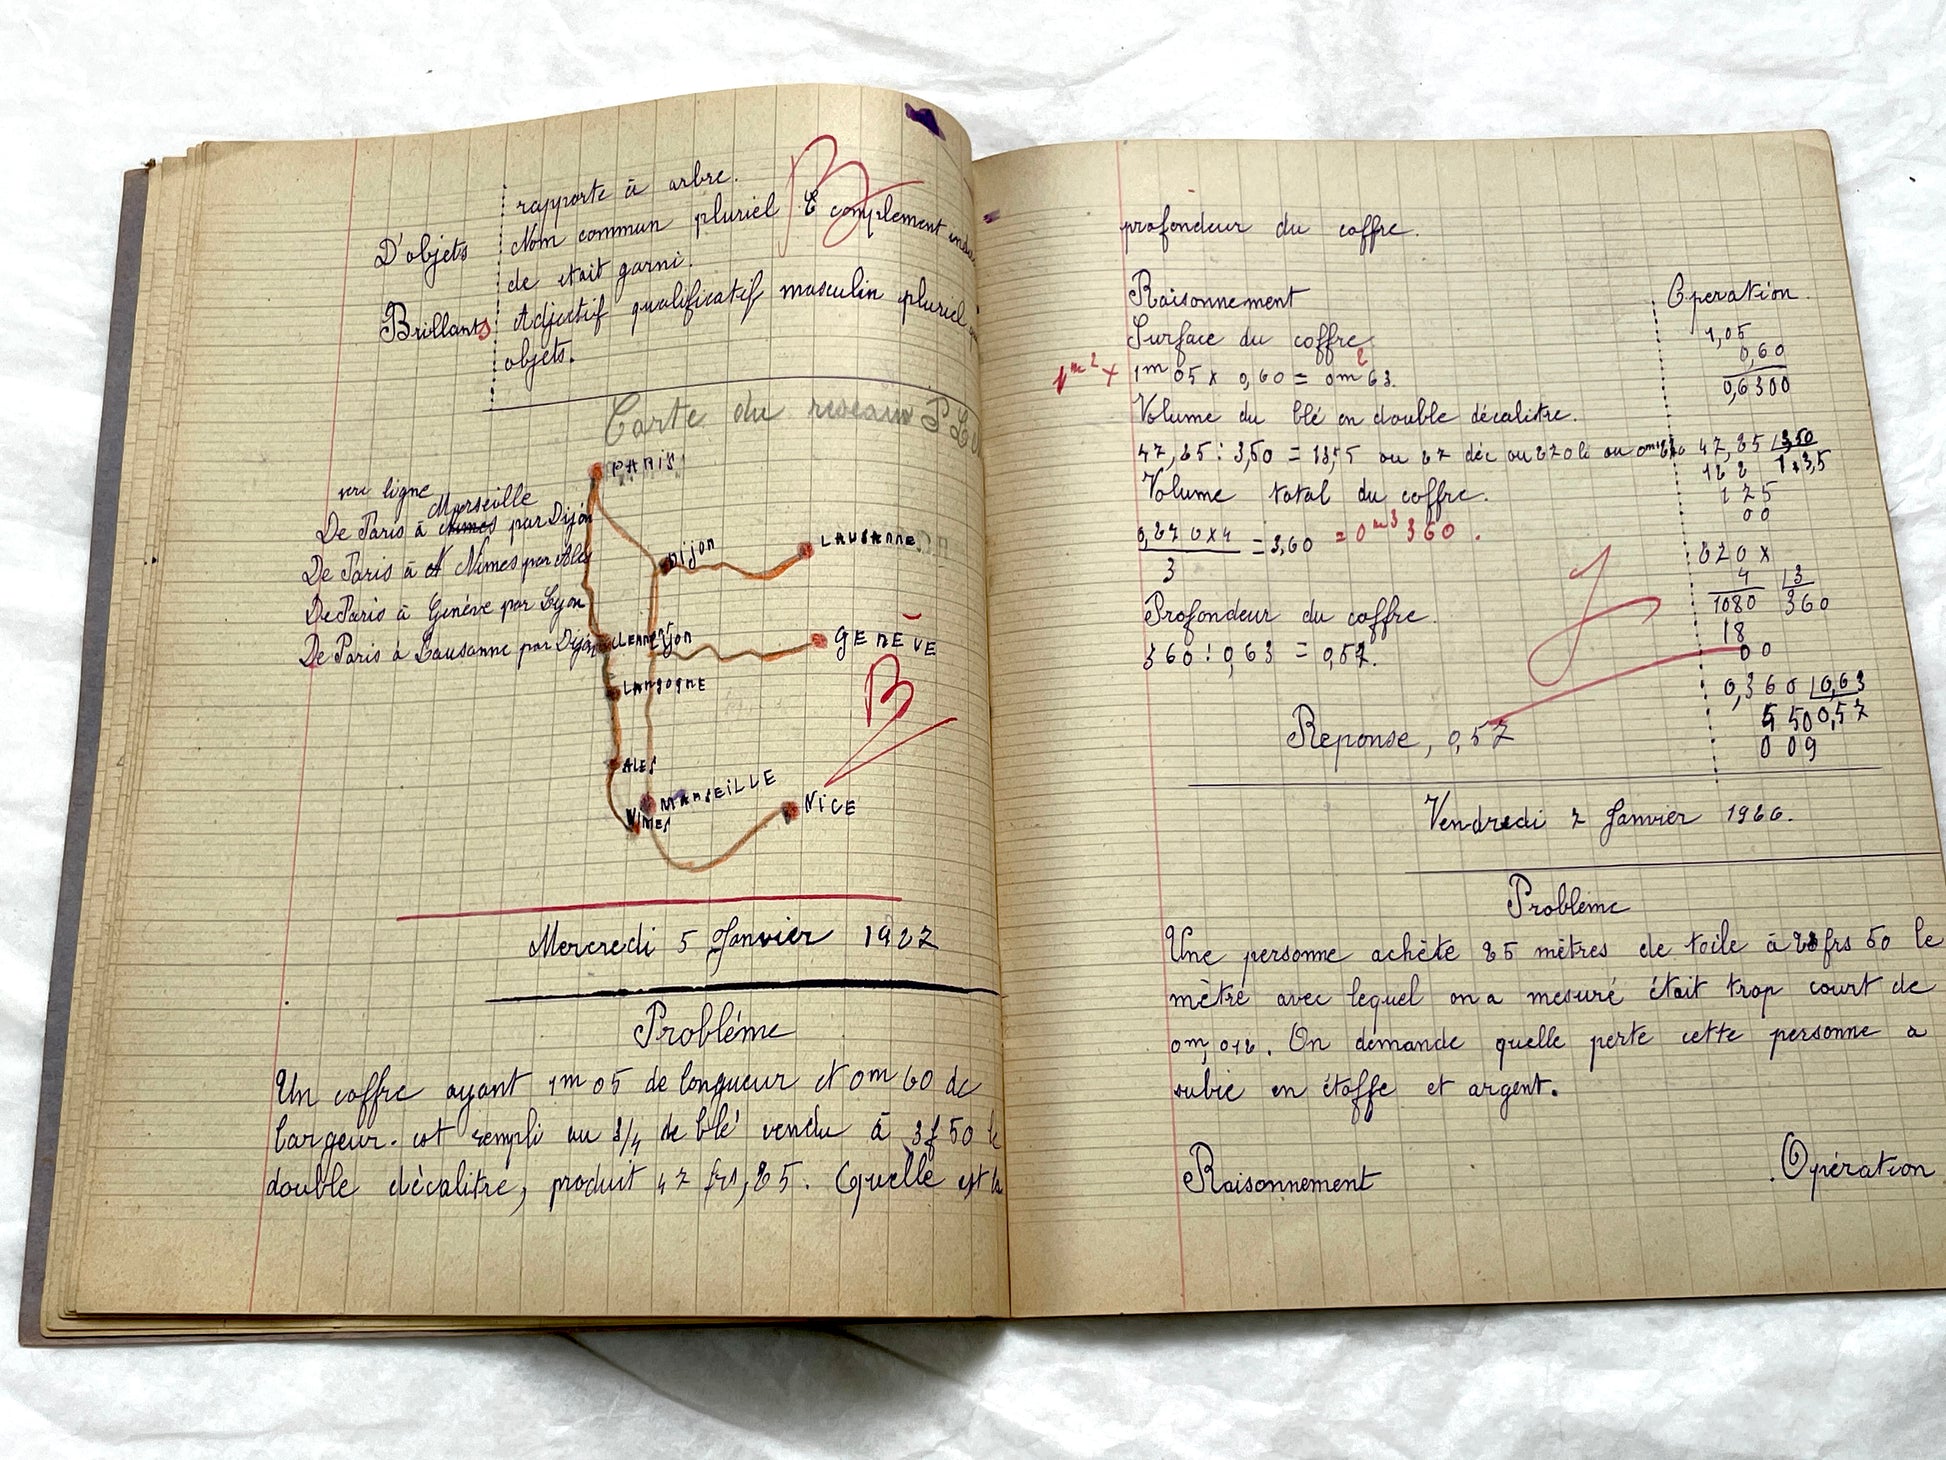 rapporte à arbre.
D'objets Nom commun pluriel C complement
de etait garni.
Brillants Adjectif qualificatif masculin pluriel
objets.
B
Carte du reseau P L
PARIS
ligne
Marseille
De Paris à Nimes par Dijon
De Paris à Nimes par Ales
De Paris à Genéve par Lyon
De Paris à Lausanne par Dijon
Dijon
LAUSANNE
CLERMONT
Lyon
GENEVE
LANGOGNE
B
ALES
MARSEILLE
NIMES
NICE
Mercredi 5 Janvier 1927
Probléme
Un coffre ayant 1m05 de longueur et 0m60 de
largeur. est rempli au 3/4 de blé vendu à 3f50 le
double décalitre, produit 47 frs,25. Quelle est la
profondeur du coffre.
Raisonnement
Operation.
Surface du coffre
1m² x
1m05 x 0,60 = 0m²63.
1,05
0,60
0,6300
Volume du blé en double décalitre.
47,25 : 3,50 = 13,5 ou 27 déc ou 270 l ou
47,25 3,50
122 13,5
175
00
Volume total du coffre.
0,270 x 4 = 3,60 = 0m³360.
3
270 x
4 3
1080 360
18
00
Profondeur du coffre.
360 : 0,63 = 0,57.
0,360 0,63
450 0,57
009
Reponse, 0,57
Vendredi 7 Janvier 1926.
Probléme
Une personne achéte 25 mètres de toile à frs 50 le
mètre avec lequel on a mesuré était trop court de
0m,012. On demande quelle perte cette personne a
subie en étoffe et argent.
Raisonnement
Opération